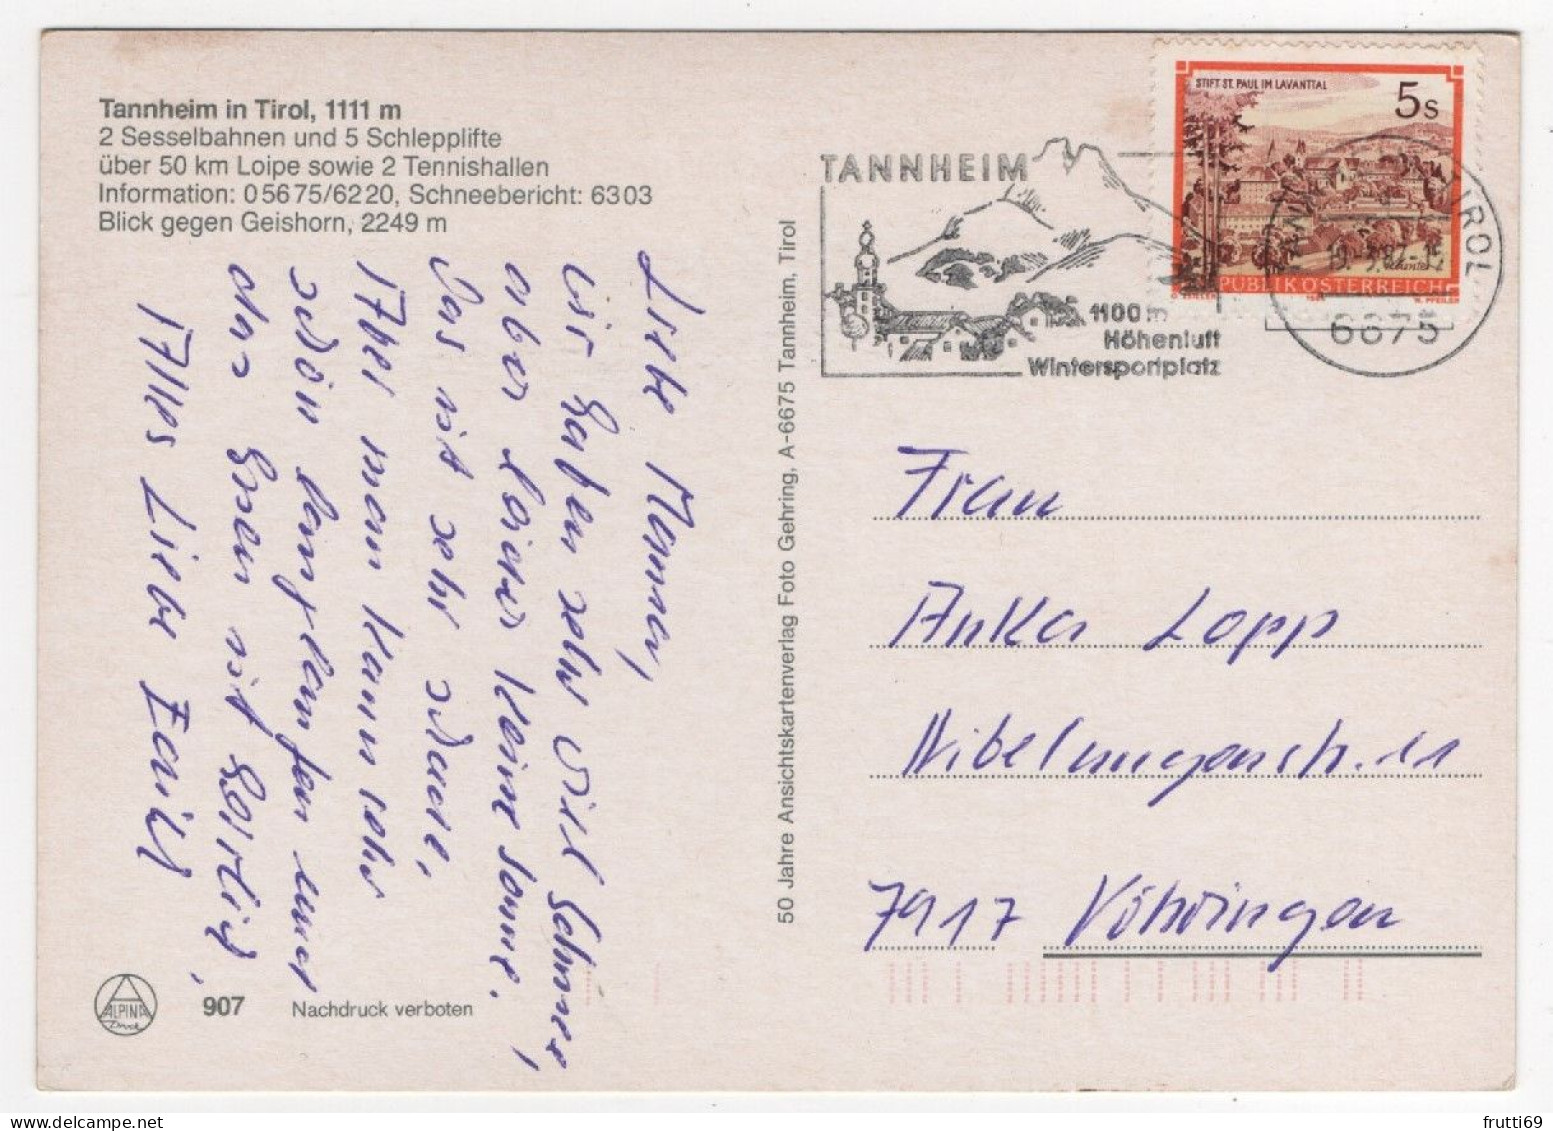 Tannheim in Tirol, 1111 m
2 Sesselbahnen und 5 Schlepplifte
über 50 km Loipe sowie 2 Tennishallen
Information: 0 56 75/62 20, Schneebericht: 63 03
Blick gegen Geishorn, 2249 m
Liebe Mama,
wir haben sehr viel Schnee,
aber leider keine Sonne.
Das ist sehr schade,
Aber man kann sehr
schön langlaufen und
das Essen ist herrlich,
Alles Liebe
ALPINA
Druck
907
Nachdruck verboten
50 Jahre Ansichtskartenverlag Foto Gehring, A-6675 Tannheim, Tirol
TANNHEIM
1100 m
Höhenluft
Wintersportplatz
STIFT ST. PAUL IM LAVANTTAL
5 S
REPUBLIK ÖSTERREICH
TIROL
6675
Frau
Anka Lopp
Nibelungenstr. 11
7917 Vöhringen
frutti69